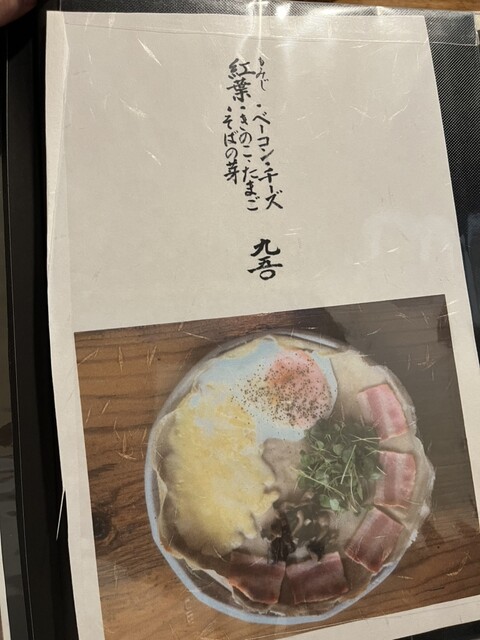 もみじ
紅葉
・ベーコン・チーズ
・きのこ・たまご
・そばの芽
九五〇